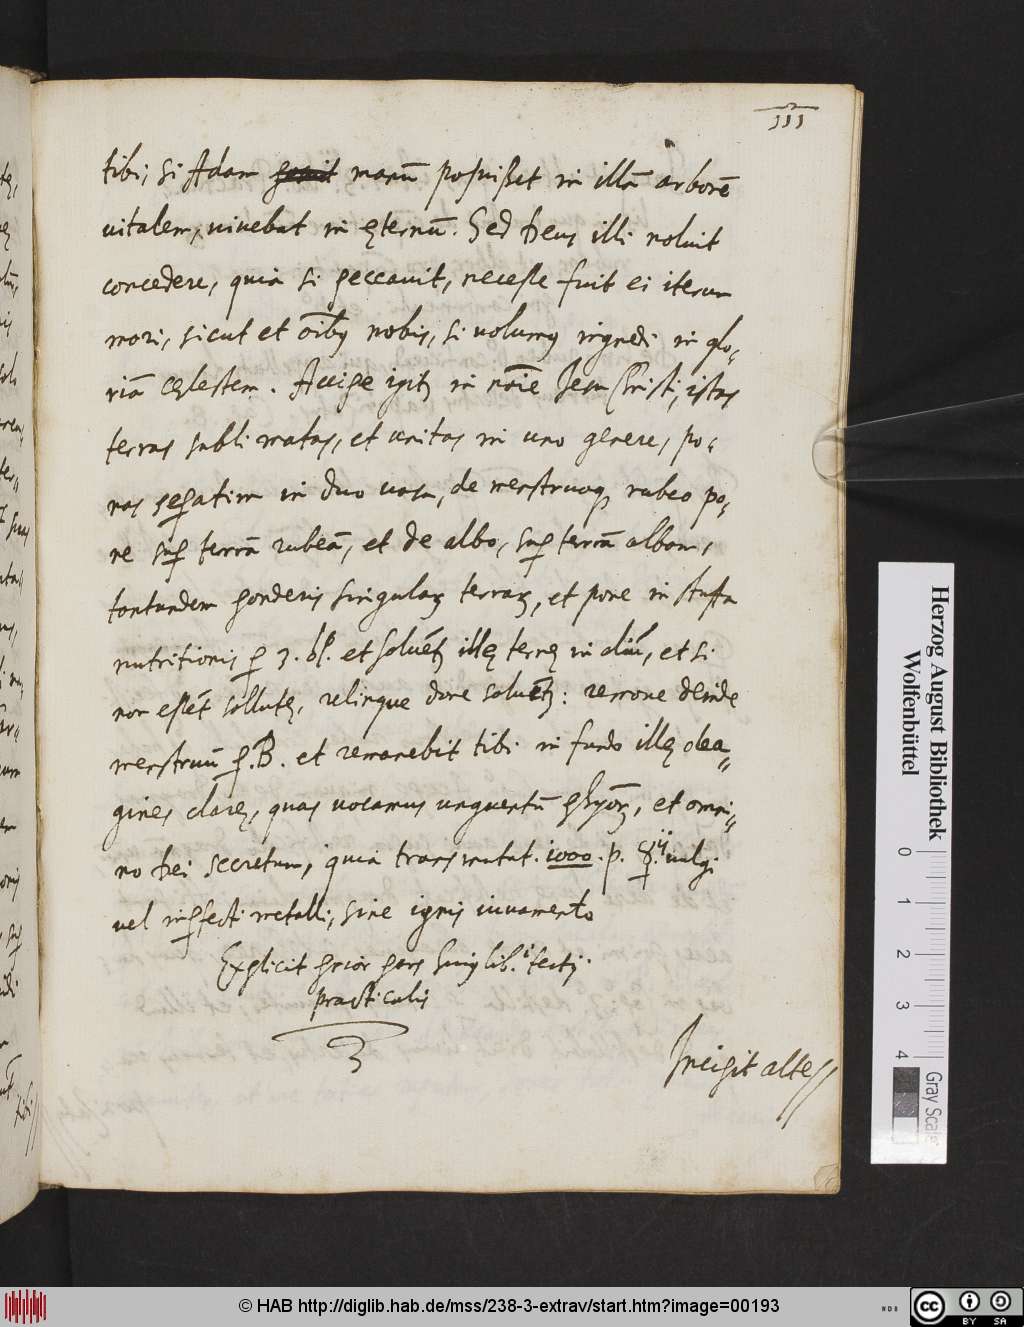 111
tibi, si Adam manū posuißet in illā arborē
uitalem, uiuebat in ęternū. Sed Deus illi noluit
concedere, quia si peccauit, necesse fuit ei iterum
mori, sicut et oībꝰ nobis, si uolumꝰ ingredi in glo-
riā cęlestem. Accipe igit in noīe Jesu Christi, istas
terras sublimatas, et unitas in uno genere, po-
nas seꝑatim in duo uasa, de menstruoqꝫ rubeo po-
ne suꝑ terrā rubeā, et de albo, suꝑ terrā albam,
tantundem ponderis singulaꝝ terraꝝ, et pone in stuffa
nutritionis ꝑ 3. et soluēt illę terrę in et si
non essēt sollutę, relinque donec soluēt: remoue deinde
menstruū ꝑ .B. et remanebit tibi in fundo illę olea-
gines clarę, quas uocamus unguentū et omni-
no Dei secretum, quia transmutat. 1000. p. ☿.ij uulgi
uel imꝑfecti metalli, sine ignis iuuamento
Explicit prior pars huiꝰ lib.i
practicalis
Incipit alte
Herzog August Bibliothek
Wolfenbüttel
0
1
2
3
4
Gray Scale
© HAB http://diglib.hab.de/mss/238-3-extrav/start.htm?image=00193
cc BY SA